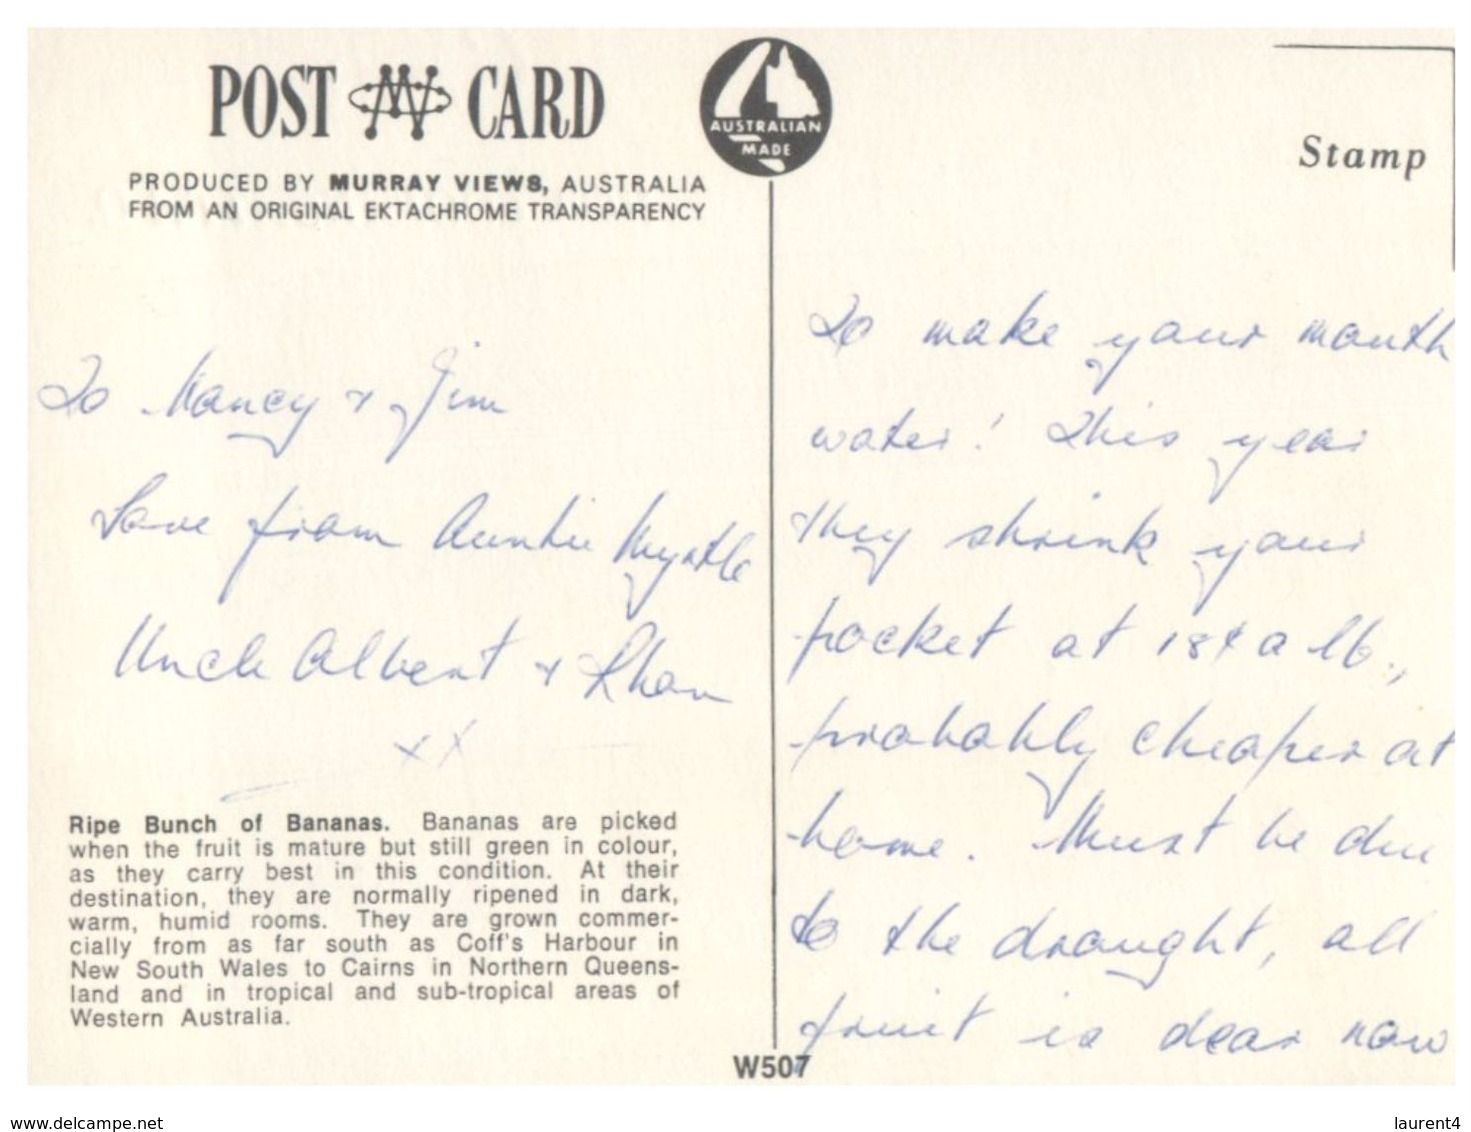 POST CARD
AUSTRALIAN
MADE
PRODUCED BY MURRAY VIEWS, AUSTRALIA
FROM AN ORIGINAL EKTACHROME TRANSPARENCY
Stamp
To Nancy + Jim
Love from Auntie Myrtle
Uncle Albert + Rhon
xx
Ripe Bunch of Bananas. Bananas are picked
when the fruit is mature but still green in colour,
as they carry best in this condition. At their
destination, they are normally ripened in dark,
warm, humid rooms. They are grown commer-
cially from as far south as Coff's Harbour in
New South Wales to Cairns in Northern Queens-
land and in tropical and sub-tropical areas of
Western Australia.
To make your mouth
water! This year
they shrink your
pocket at 18¢ a lb.,
probably cheaper at
home. Must be due
to the draught, all
fruit is dear now
W507
www.delcampe.net
laurent4